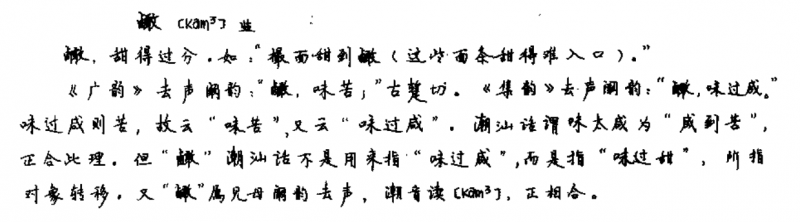 𪉿 [Kam³] 监
𪉿，甜得过分。如：“撮面甜到𪉿（这些面条甜得难入口）。”
《广韵》去声阚韵：“𪉿，味苦；”古切。《集韵》去声阚韵：“𪉿，味过咸。”
味过咸则苦，故云“味苦”，又云“味过咸”。潮汕话谓味太咸为“咸到苦”，
正合此理。但“𪉿”潮汕话不是用来指“味过咸”，而是指“味过甜”，所指
对象转移。又“𪉿”属见母阚韵去声，潮音读[Kam³]，正相合。